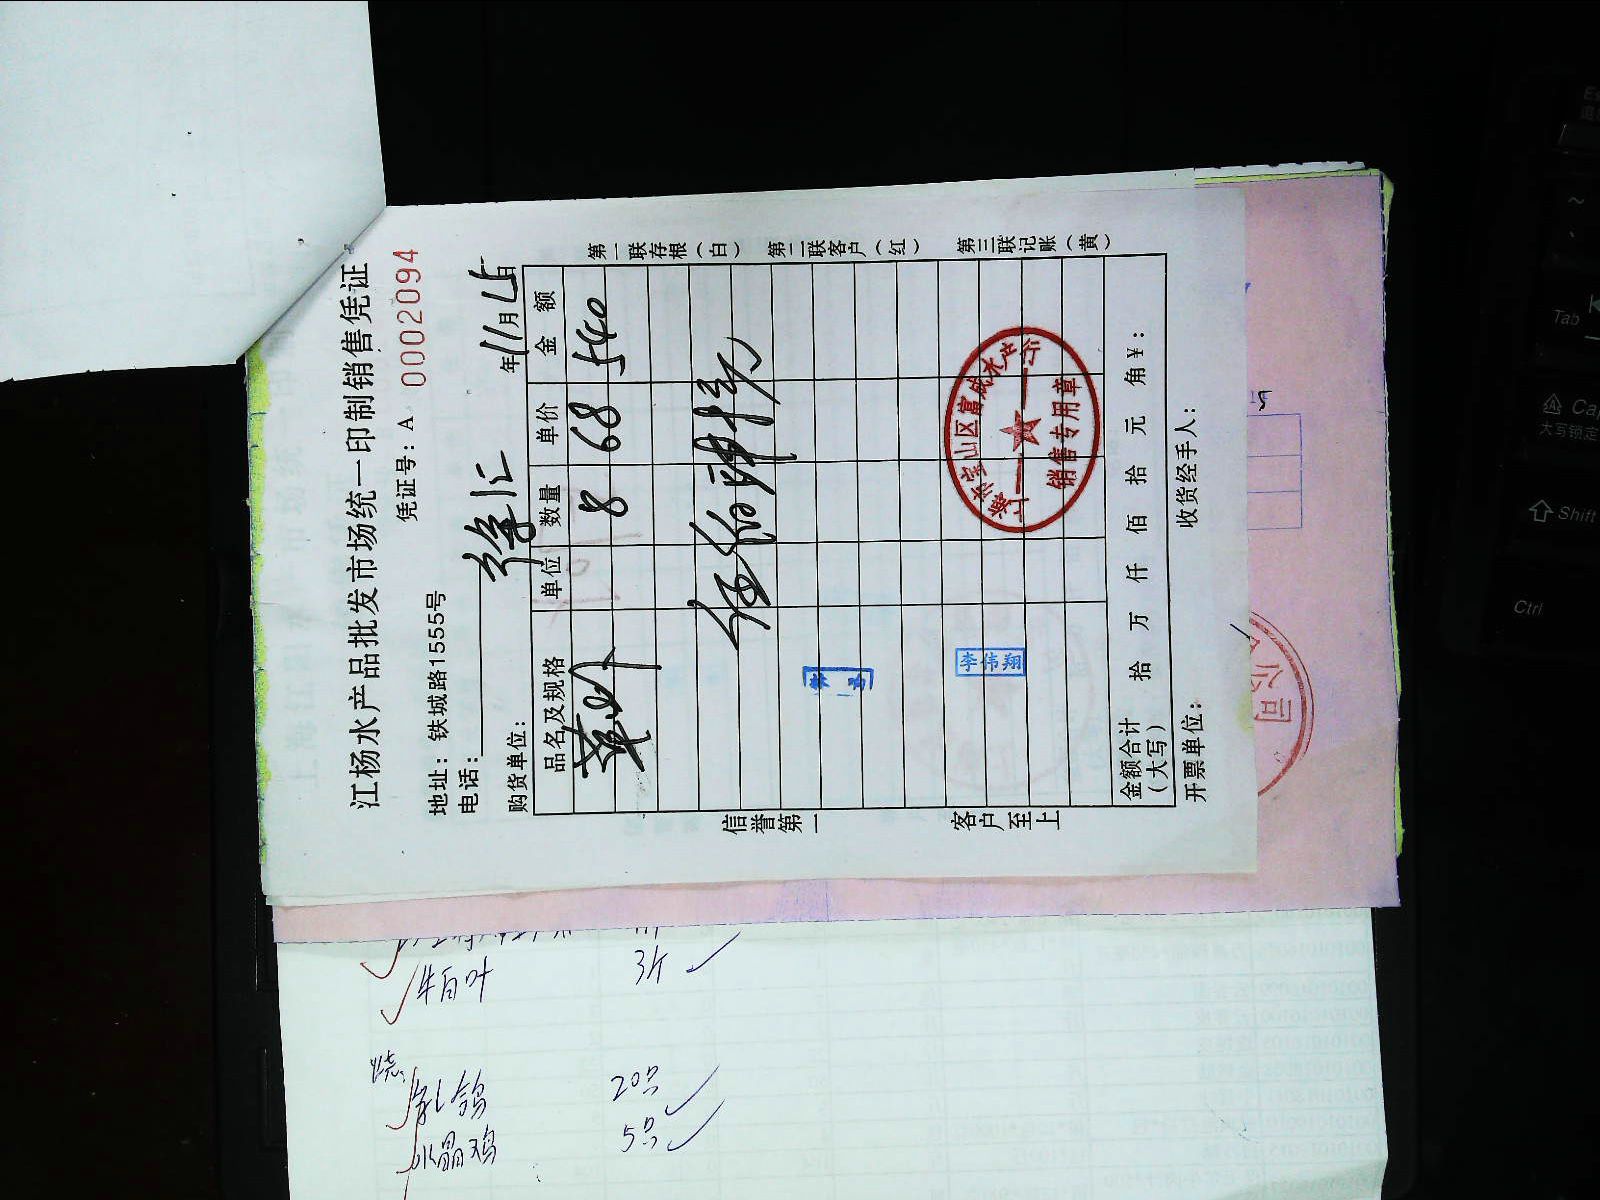 江杨水产品批发市场统一印制销售凭证
凭证号：A 0002094
地址：铁城路1555号
电话：
购货单位： 徐汇 年11月15日
品名及规格 单位 数量 单价 金额
8 68 540
第一联存根（白） 第二联客户（红） 第三联记账（黄）
信誉第一 客户至上
李伟翔
上海市宝山区富成水产行
销售专用章
金额合计（大写） 拾 万 仟 佰 拾 元 角 ¥：
开票单位： 收货经手人：
公司
牛百叶 3斤
烧
乳鸽 20只
水晶鸡 5只
Tab
Cap
大写锁定
Shift
Ctrl